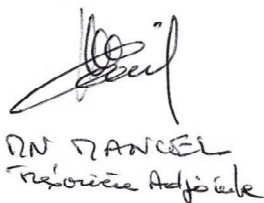 MN MANCEL
Trésorière Adjointe